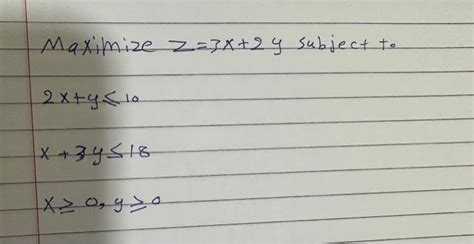 Maximize Z=3x+2y subject to
2x+y≤10
x+3y≤18
x≥0, y≥0